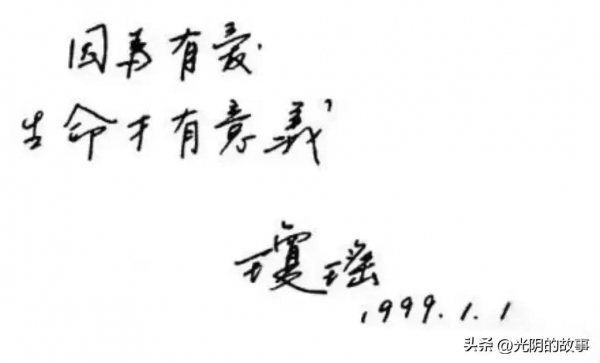 因為有愛
生命才有意義
瓊瑤
1999.1.1
头条 @光阴的故事